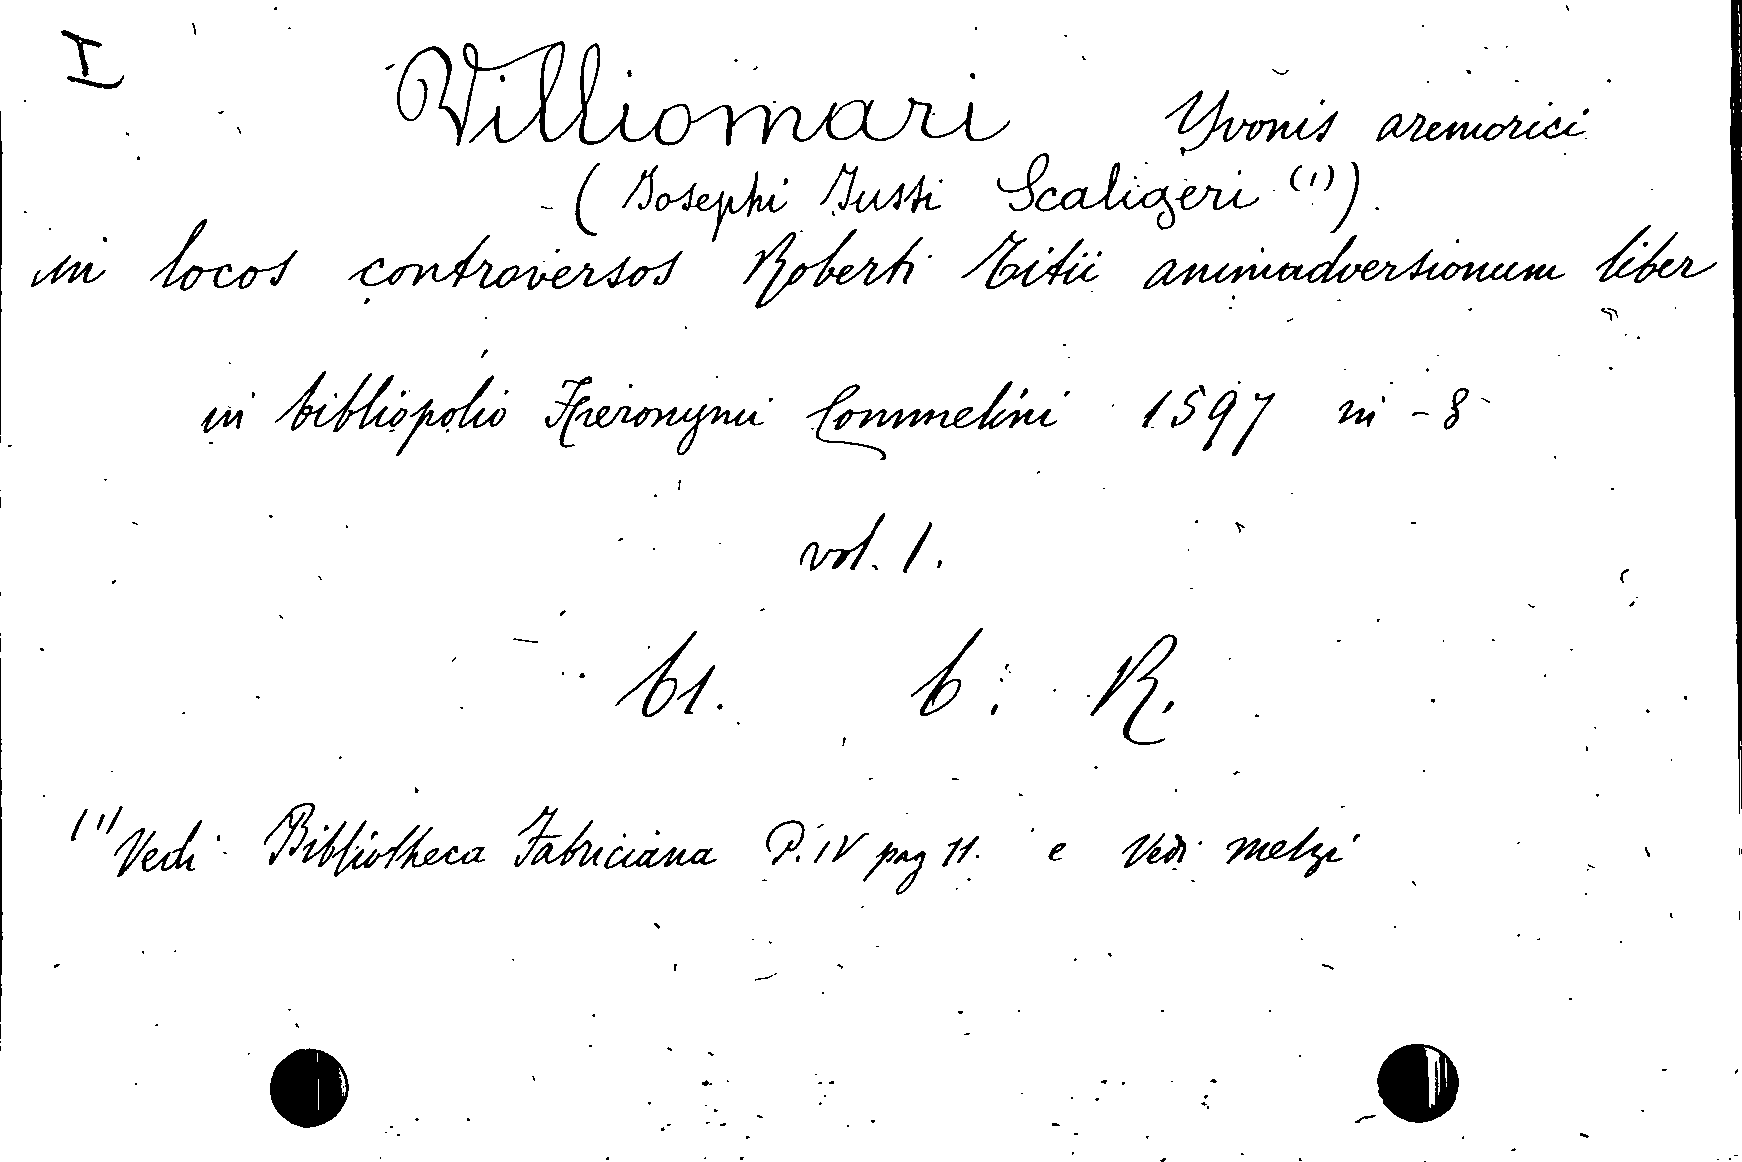 I
Villiomari Yvonis aremorici
(Josephi Justi Scaligeri (1))
in locos controversos Roberti Titii animadversionum liber
in bibliopolio Hieronymi Commelini 1597 in-8
vol. 1.
61. 6. R.
(1) Vedi Bibliotheca Fabriciana P. IV pag 11. e Vedi Melzi